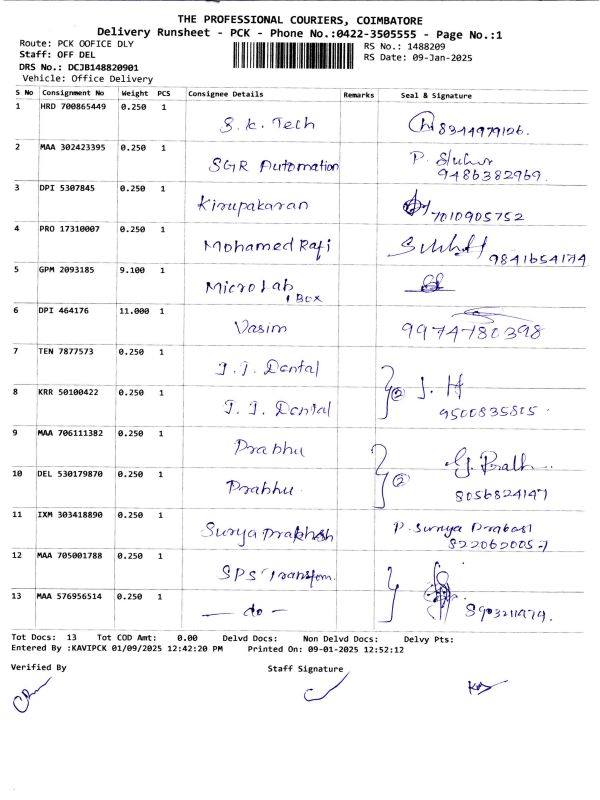 THE PROFESSIONAL COURIERS, COIMBATORE
Delivery Runsheet - PCK - Phone No.:0422-3505555 - Page No.:1
Route: PCK OOFICE DLY
RS No.: 1488209
Staff: OFF DEL
RS Date: 09-Jan-2025
DRS No.: DCJB148820901
Vehicle: Office Delivery
S No Consignment No Weight PCS Consignee Details Remarks Seal & Signature
1 HRD 700865449 0.250 1
S.K. Tech 8344979126.
2 MAA 302423395 0.250 1
SGR Automation 9486382969.
3 DPI 5307845 0.250 1
Kirupakaran 7010905752
4 PRO 17310007 0.250 1
Mohamed Rafi 9841654174
5 GPM 2093185 9.100 1
Micro Lab
1 Box
6 DPI 464176 11.000 1
Vasim 9974780398
7 TEN 7877573 0.250 1
J.J. Dental
8 KRR 50100422 0.250 1
② J. H
J.J. Dental 9500835805.
9 MAA 706111382 0.250 1
Prabhu
10 DEL 530179870 0.250 1
②
Prabhu. 8056824147
11 IXM 303418890 0.250 1
Surya Prakash P. Surya
12 MAA 705001788 0.250 1
SPS
13 MAA 576956514 0.250 1
— do — 8903211474.
Tot Docs: 13 Tot COD Amt: 0.00 Delvd Docs: Non Delvd Docs: Delvy Pts:
Entered By :KAVIPCK 01/09/2025 12:42:20 PM Printed On: 09-01-2025 12:52:12
Verified By Staff Signature